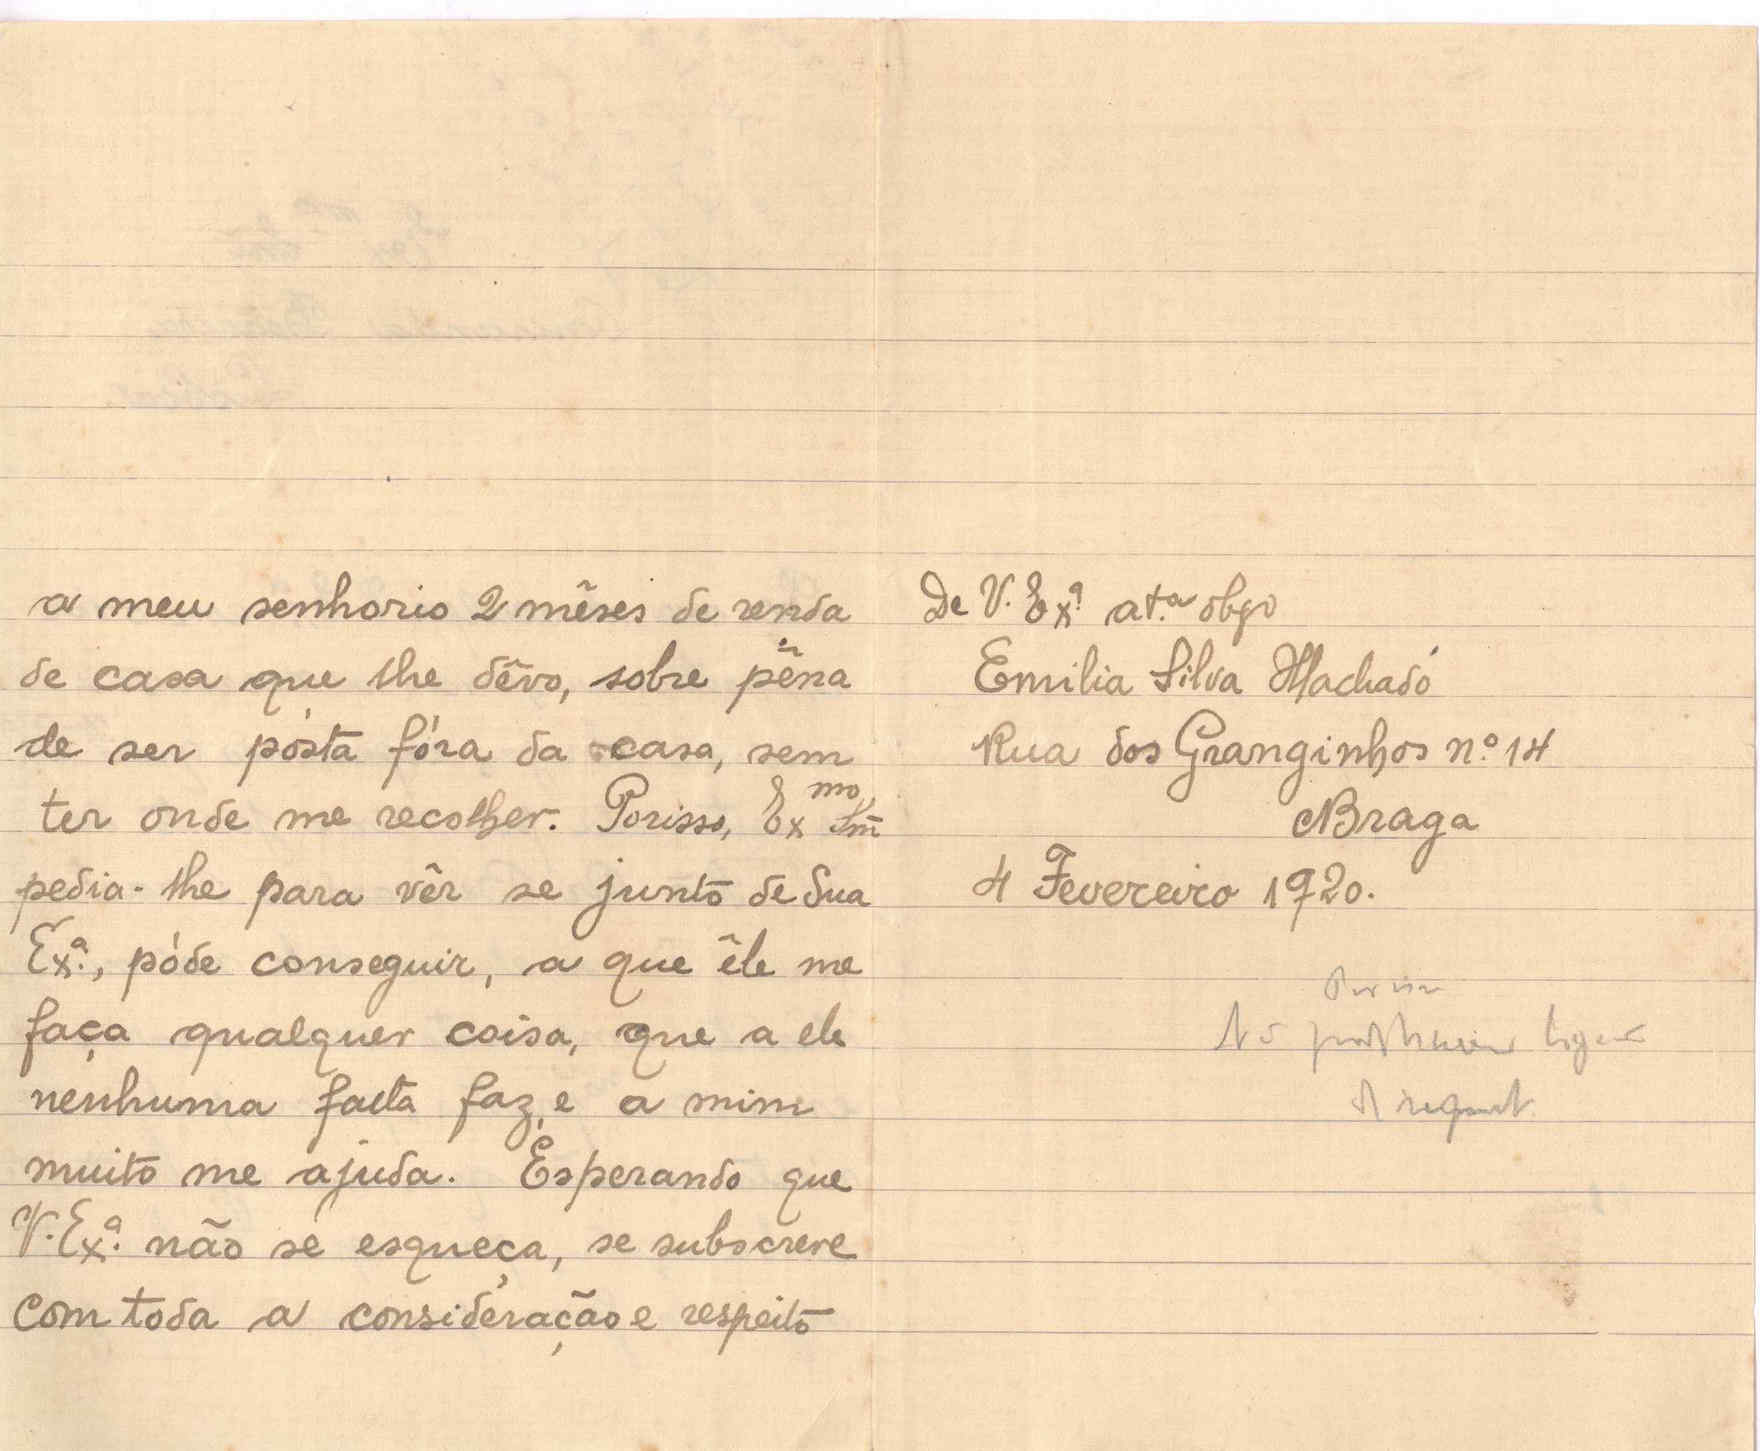 a meu senhorio 2 mêses de renda
de casa que lhe dêvo, sobre pêna
de ser pósta fóra da casa, sem
ter onde me recolher. Porisso, Ex mo Snr
pedia-lhe para vêr se junto de Sua
Exª., póde conseguir, a que êle me
faça qualquer coisa, que a ele
nenhuma falta faz, e a mim
muito me ajuda. Esperando que
V. Exª. não se esqueça, se subscreve
com toda a consideração e respeito
De V. Exª. at.ª obgo
Emilia Silva Machado
Rua dos Granginhos nº. 14
Braga
4 Fevereiro 1920.